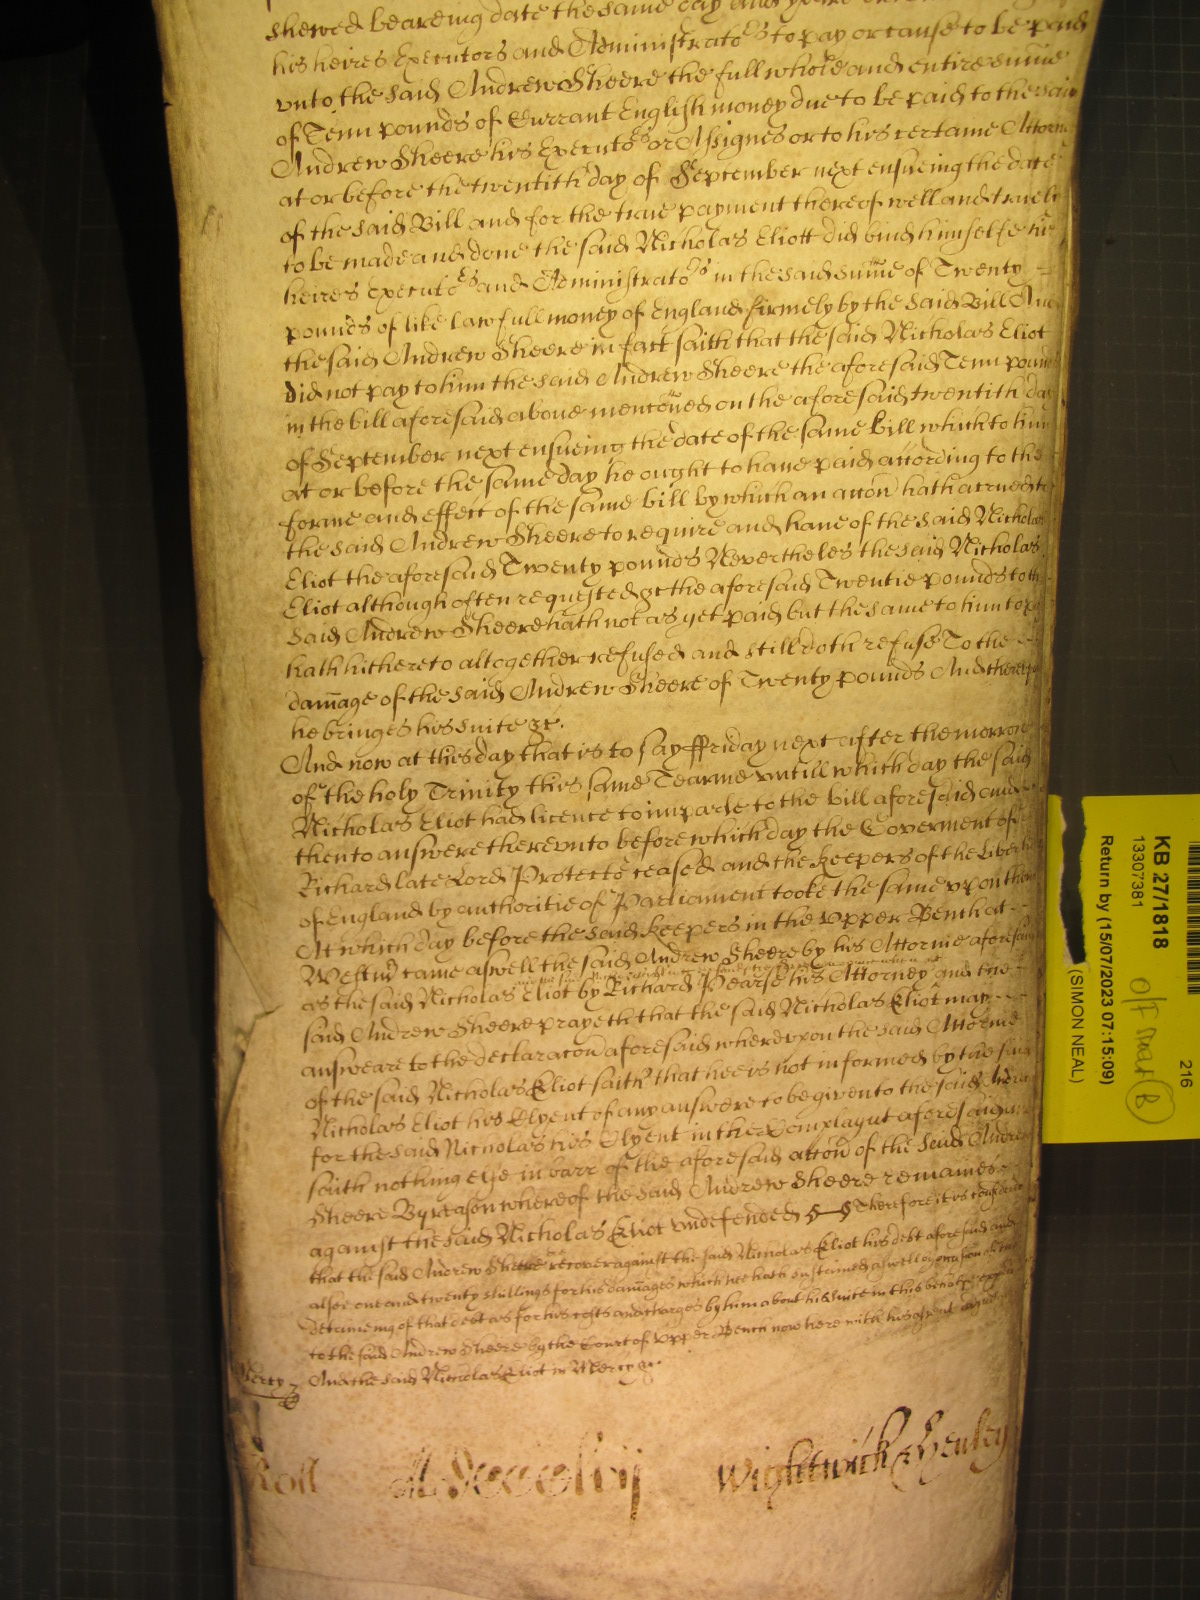 shewed beareing date the same day and yeare
his heires Executors and Administrators to pay or cause to be paid
vnto the said Andrew Sheere the full whole and entire summe
of Tenn pounds of Currant English money due to be paid to the said
Andrew Sheere his Executors or Assignes or to his certaine Attorn
at or before the twentith day of September next ensueing the date
of the said Bill and for the true payment thereof well and truely
to be made and done the said Nicholas Eliott did bind himselfe his
heires Executors and Administrators in the said summe of Twenty
pounds of like lawfull money of England firmely by the said Bill And
the said Andrew Sheere in fact saith that the said Nicholas Eliot
did not pay to him the said Andrew Sheere the aforesaid Tenn pounds
in the bill aforesaid aboue menconed on the aforesaid twentith day
of September next ensueing the date of the same bill which to him
at or before the same day he ought to haue paid according to the
forme and effect of the same bill by which an accon hath acrued to
the said Andrew Sheere to require and haue of the said Nicholas
Eliot the aforesaid Twenty pounds Neverthelesse the said Nicholas
Eliot although often requested &c the aforesaid Twentie pounds to the
said Andrew Sheere hath not as yet paid but the same to him to pay
hath hithereto altogether refused and still doth refuse To the
damage of the said Andrew Sheere of Twenty pounds And thereupon
he bringes his suite &c.
And now at this day that is to say ffriday next after the morrow
of the holy Trinity this same Tearme vntill which day the said
Nicholas Eliot had licence to imparle to the bill aforesaid and
then to answere therevnto before which day the Goverment of
Richard late Lord Protector ceased and the keepers of the Liberties
of England by authoritie of Parliament tooke the same vpon them
At which day before the said keepers in the Vpper Bench at
Westmr came aswell the said Andrew Sheere by his Attornie aforesaid
as the said Nicholas Eliot by Richard Pearse his Attorney and the
said Andrew Sheere prayeth that the said Nicholas Eliot may
answeare to the declaracon aforesaid wherevpon the said Attornie
of the said Nicholas Eliot saith that hee is not informed by the said
Nicholas Eliot his Clyent of any answere to be given to the said Andrew
for the said Nicholas his Clyent in the Complaynt aforesaid
saith nothing else in barr of the aforesaid accon of the said Andrew
Sheere By reason whereof the said Andrew Sheere remaines
against the said Nicholas Eliot vndefended Therefore it is considered
that the said Andrew Sheere recover against the said Nicholas Eliot his debt aforesaid and
alsoe one and twenty shillings for his damages which hee hath susteined aswell by occasion of the
deteineing of that debt as for his costs and charges by him about his suite in this behalfe
to the said Andrew Sheere by the Court of Vpper Bench now here with his assent
And the said Nicholas Eliot in Mercy &c.
Mercy
Roll
Wightwick & Henley
KB 27/1818
13307381
Return by (15/07/2023 07:15:09)
(SIMON NEAL)
216